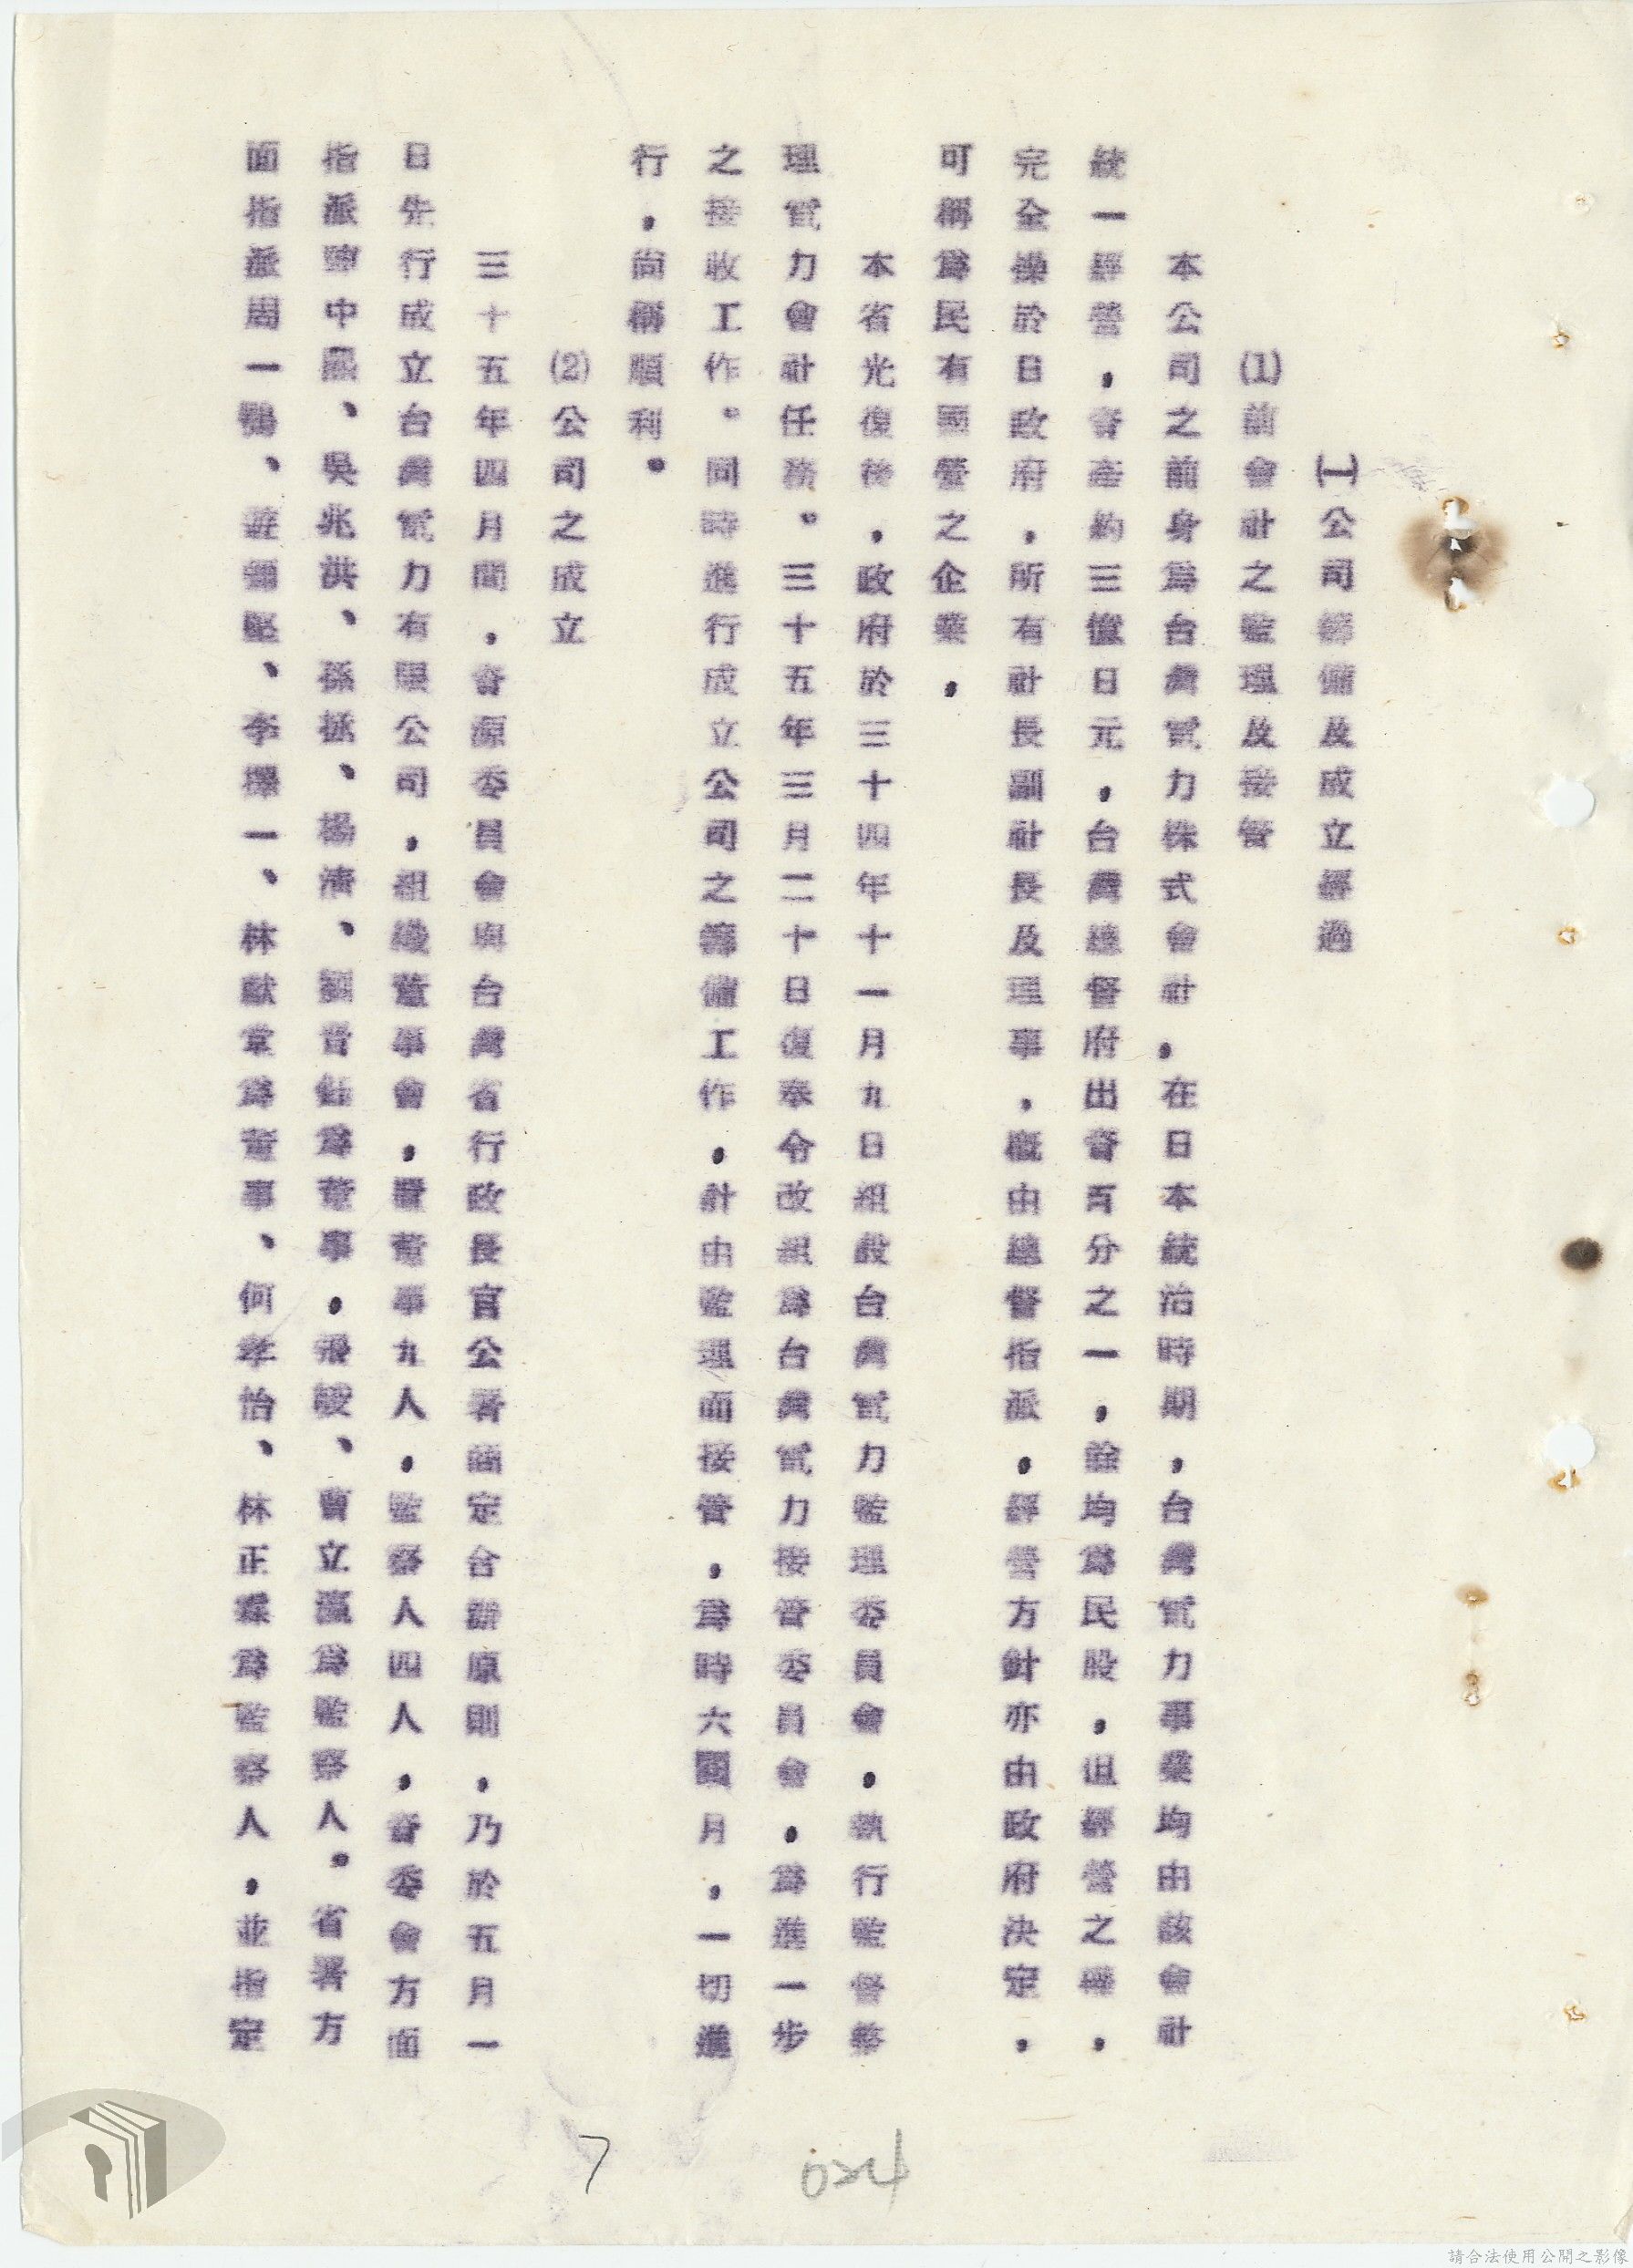 (一)公司籌備及成立經過
(1)前會社之監理及接管
本公司之前身為台灣電力株式會社，在日本統治時期，台灣電力事業均由該會社
統一經營，資產約三億日元，台灣總督府出資百分之一，餘均為民股，但經營之權，
完全操於日政府，所有社長副社長及理事，概由總督指派，經營方針亦由政府決定，
可稱為民有國營之企業，
本省光復後，政府於三十四年十一月九日組設台灣電力監理委員會，執行監督整
理電力會社任務。三十五年三月二十日復奉令改組為台灣電力接管委員會，為進一步
之接收工作。同時進行成立公司之籌備工作，計由監理而接管，為時六閱月，一切進
行，尚稱順利。
(2)公司之成立
三十五年四月間，資源委員會與台灣省行政長官公署商定合辦原則，乃於五月一
日先行成立台灣電力有限公司，組織董事會，置董事九人，監察人四人，資委會方面
指派陳中熙、吳兆洪、孫拯、楊清、劉晋鈺為董事。張峻、曹立瀛為監察人。省署方
面指派周一鶚、游彌堅、李擇一、林獻堂為董事、何孝怡、林正霖為監察人，並指定
7
024
請合法使用公開之影像